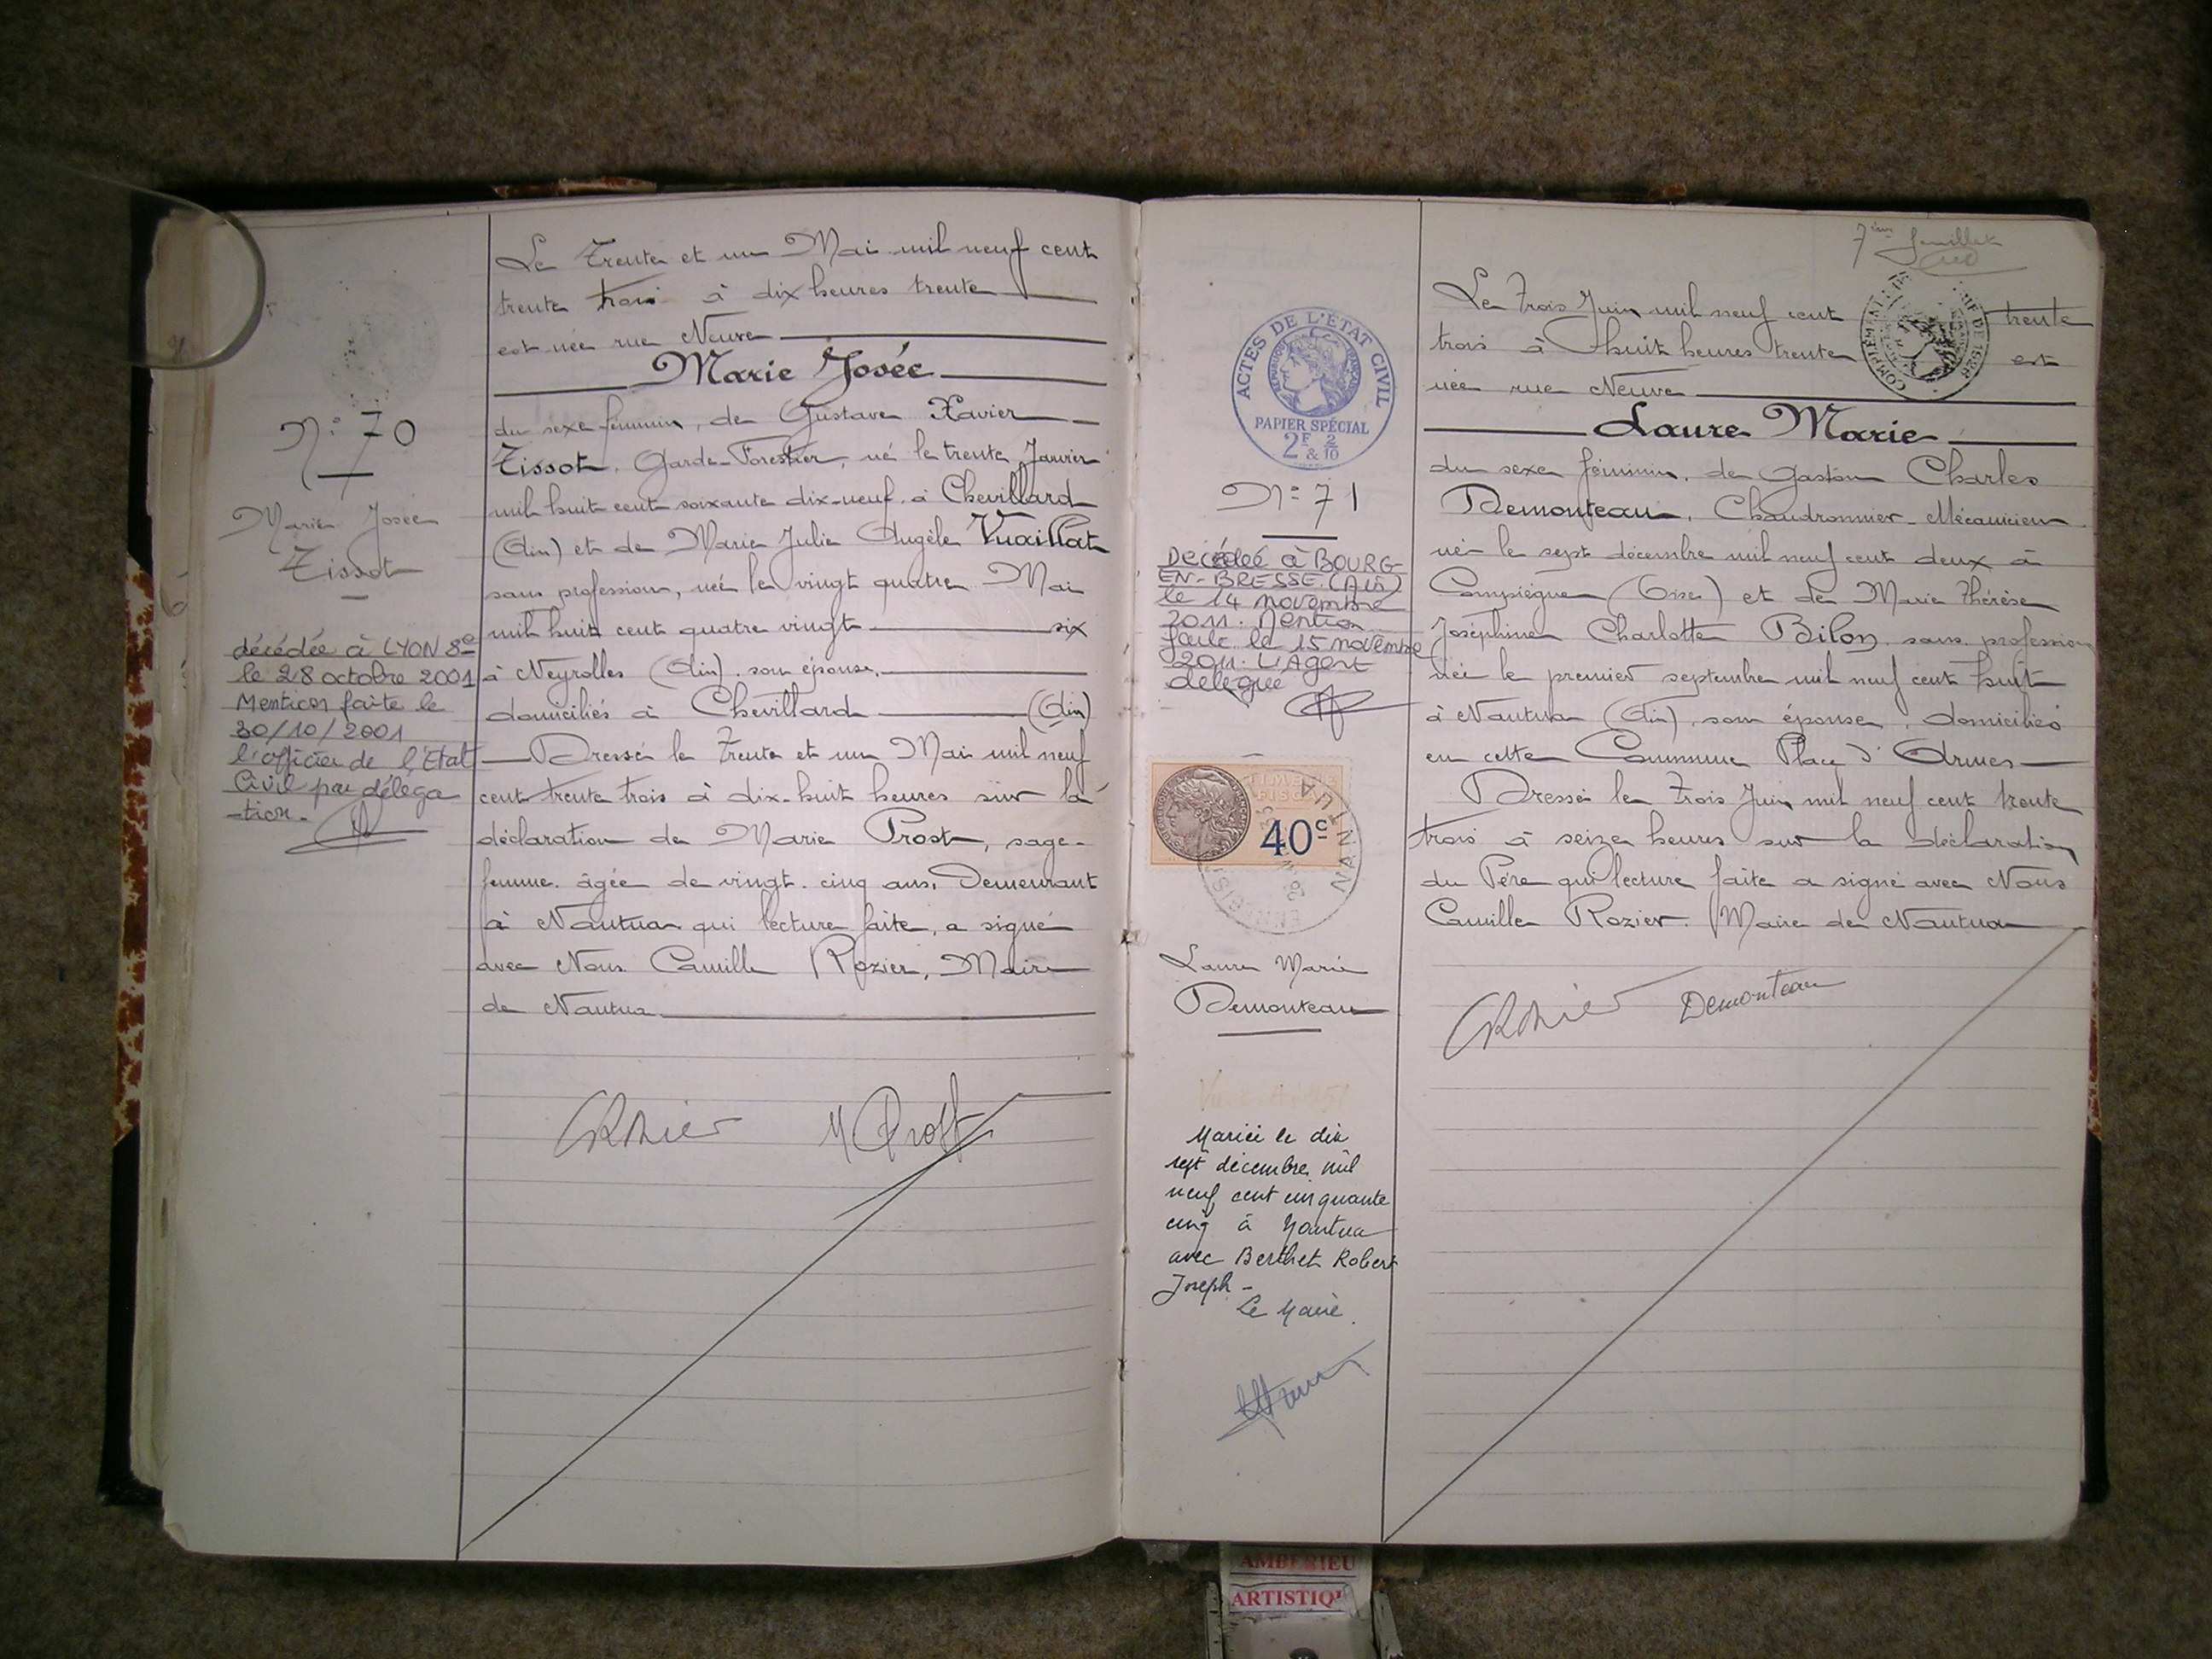 N° 70
Marie Josée
Tissot
décédée à LYON 8e
le 28 octobre 2001
Mention faite le
30/10/2001
l'officier de l'Etat
Civil par déléga
-tion.
Le Trente et un Mai mil neuf cent
trente trois à dix heures trente
est née rue Neuve
Marie Josée
du sexe féminin, de Gustave Xavier
Tissot, Garde-Forestier, né le trente Janvier
mil huit cent soixante dix-neuf à Chevillard
(Ain) et de Marie Julie Angèle Vuaillat
sans profession, née le vingt quatre Mai
mil huit cent quatre vingt six
à Neyrolles (Ain), son épouse,
domiciliés à Chevillard (Ain)
Dressé le Trente et un Mai mil neuf
cent trente trois à dix-huit heures sur la
déclaration de Marie Prost, sage-
femme, âgée de vingt-cinq ans, Demeurant
à Nantua qui lecture faite, a signé
avec Nous Camille Rozier, Maire
de Nantua
CRozier M Prost
ACTES DE L'ÉTAT CIVIL
RÉPUBLIQUE FRANÇAISE
PAPIER SPÉCIAL
2F & 2/10
N° 71
Décédée à BOURG-
EN-BRESSE (Ain)
le 14 novembre
2011. Mention
faite le 15 novembre
2011. L'Agent
délégué
TIMBRE
FISCAL
40c
NANTUA
Laure Marie
Demonteau
Mariée le dix
sept décembre mil
neuf cent cinquante
cinq à Nantua
avec Berthet Robert
Joseph -
Le Maire.
7ème feuillet
Le Trois Juin mil neuf cent trente
trois à huit heures trente est
née rue Neuve
Laure Marie
du sexe féminin, de Gaston Charles
Demonteau, Chaudronnier-Mécanicien
né le sept décembre mil neuf cent deux à
Compiègne (Oise) et de Marie Thérèse
Joséphine Charlotte Bilon, sans profession
née le premier septembre mil neuf cent huit
à Nantua (Ain), son épouse, domiciliés
en cette Commune Place d'Armes
Dressé le Trois Juin mil neuf cent trente
trois à seize heures sur la déclaration
du Père qui lecture faite a signé avec Nous
Camille Rozier, Maire de Nantua
CRozier Demonteau
AMBERIEU
ARTISTIQ